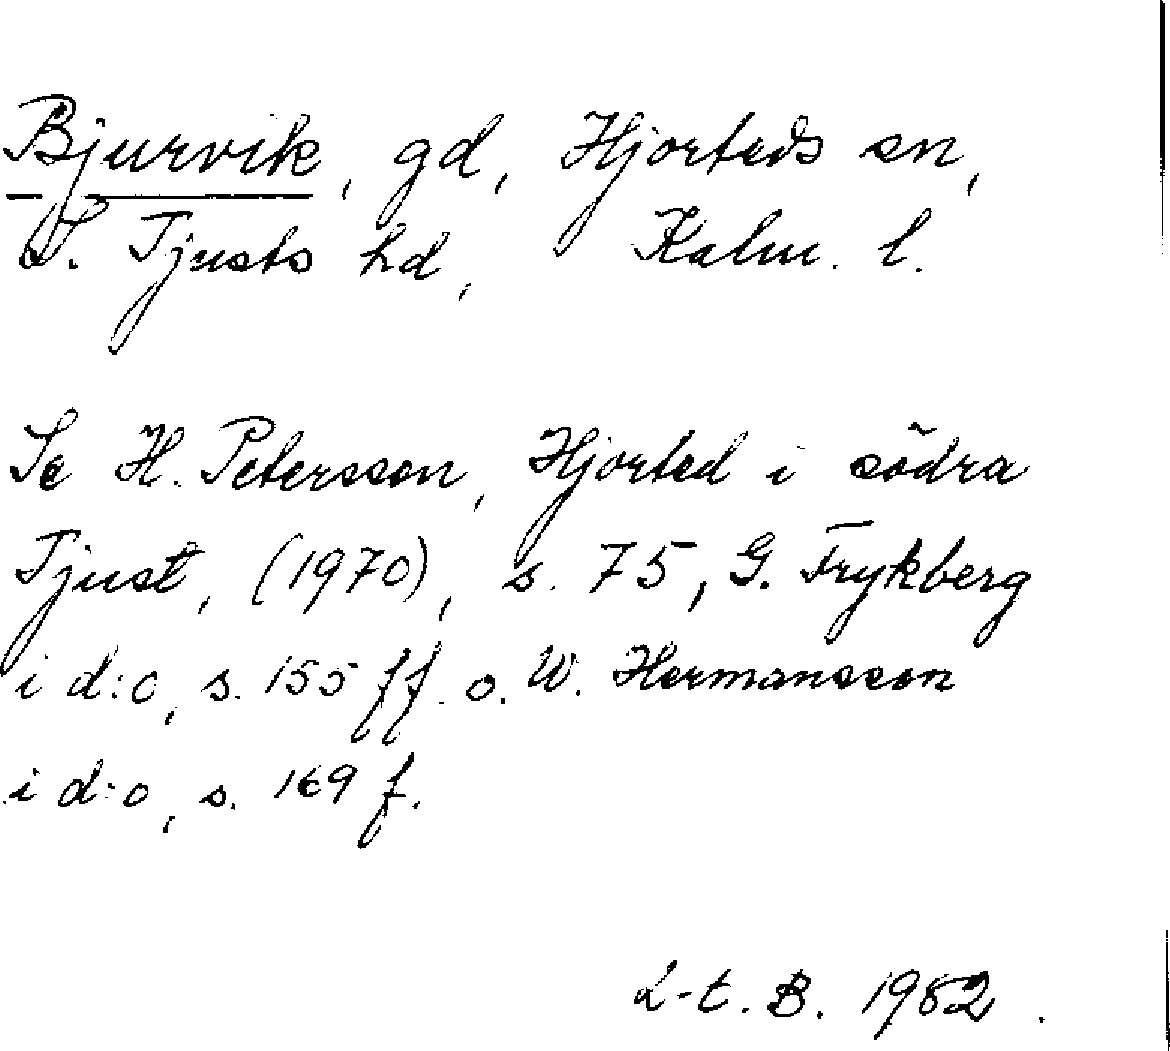 Bjurvik, gd, Hjorteds sn,
S. Tjusts hd, Kalm. l.
Se H. Petersson, Hjorted i södra
Tjust, (1970), s. 75, G. Frykberg
i d:o, s. 155 ff. o. W. Hermansson
i d:o, s. 169 f.
L-t. B. 1982.